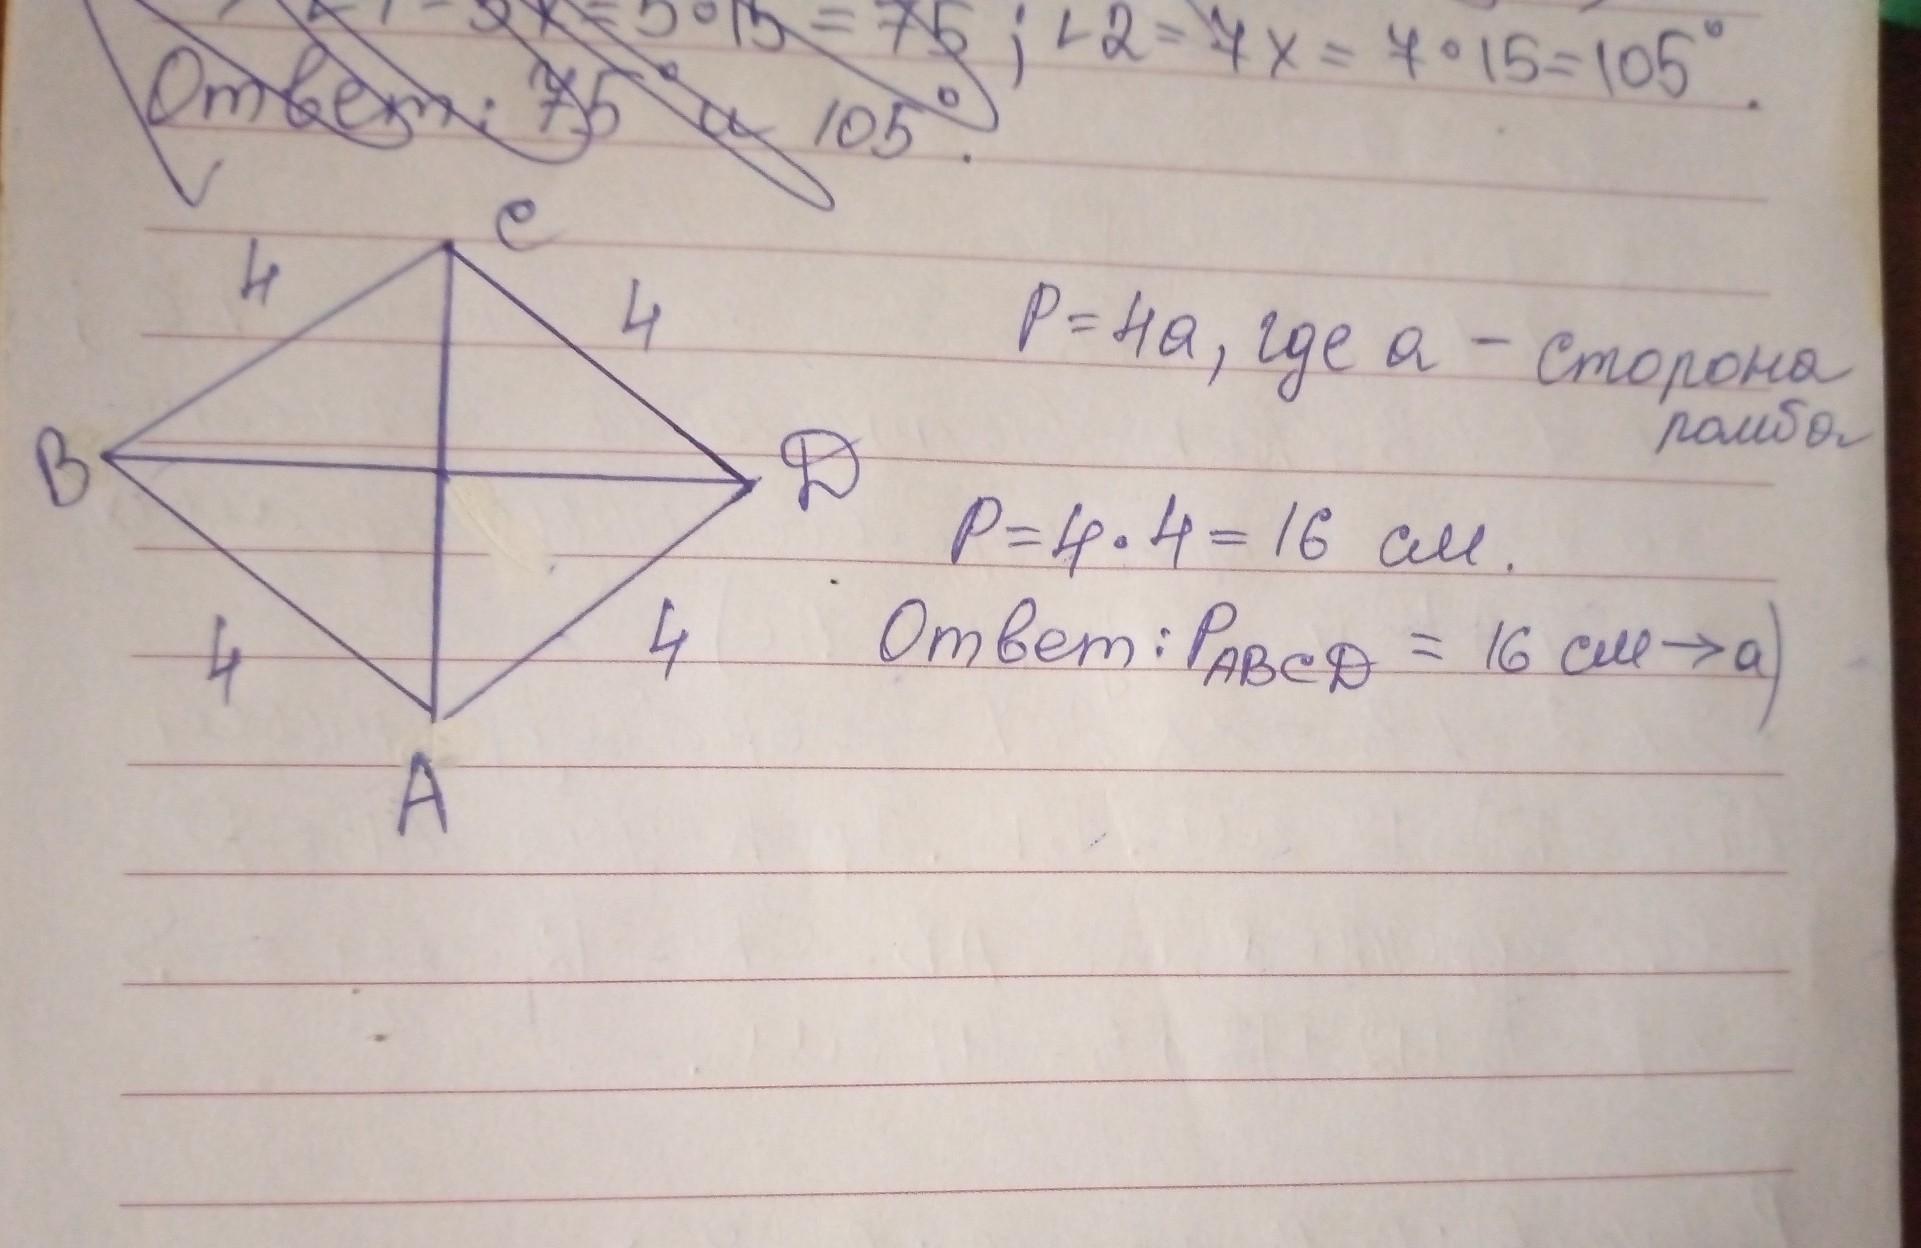 ∠1 = 5x = 5•15 = 75°; ∠2 = 7x = 7•15 = 105°.
Ответ: 75° и 105°.
C
4
4
P = 4a, где a - сторона
ромба
B
D
P = 4•4 = 16 см.
4
4
Ответ: PABCD = 16 см → а)
A